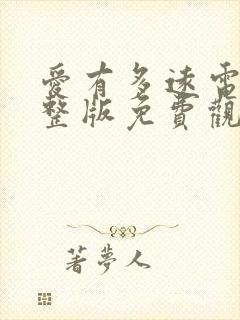 愛有多遠電
整版免費觀
著夢人